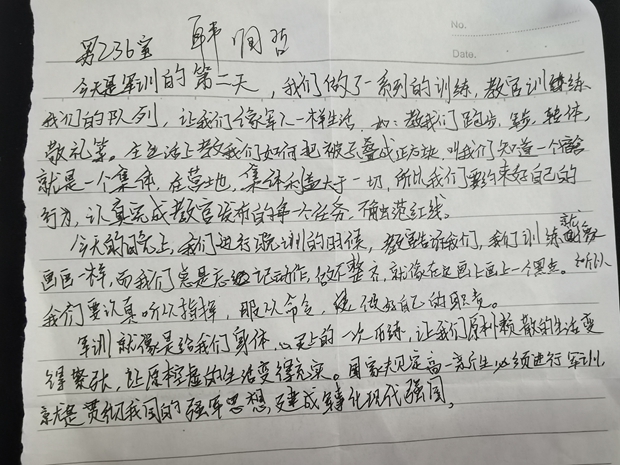 No.
Date.
男236室 韩润哲
今天是军训的第二天，我们做了一系列的训练，教官训练
我们的队列，让我们像军人一样生活，如：教我们跑步，转体，
敬礼等。在生活上教我们如何把被子叠成正方块，叫我们知道一个宿舍
就是一个集体，在营地，集体利益大于一切，所以我们要约束好自己的
行为，认真完成教官发布的每一个任务，不触犯红线。
今天的晚上，我们进行晚训的时候，教官告诉我们，我们训练就像
画画一样，而我们总是忘记动作，做不整齐，就像在白画上画上一个黑点。所以
我们要认真听从指挥，服从命令，做好自己的职责。
军训就像是给我们身体、心灵上的一次历练，让我们原来懒散的生活变
得紧张，让原本空虚的生活变得充实。国家规定高一新生必须进行军训，
就是贯彻我国的强军思想，建成现代强国。